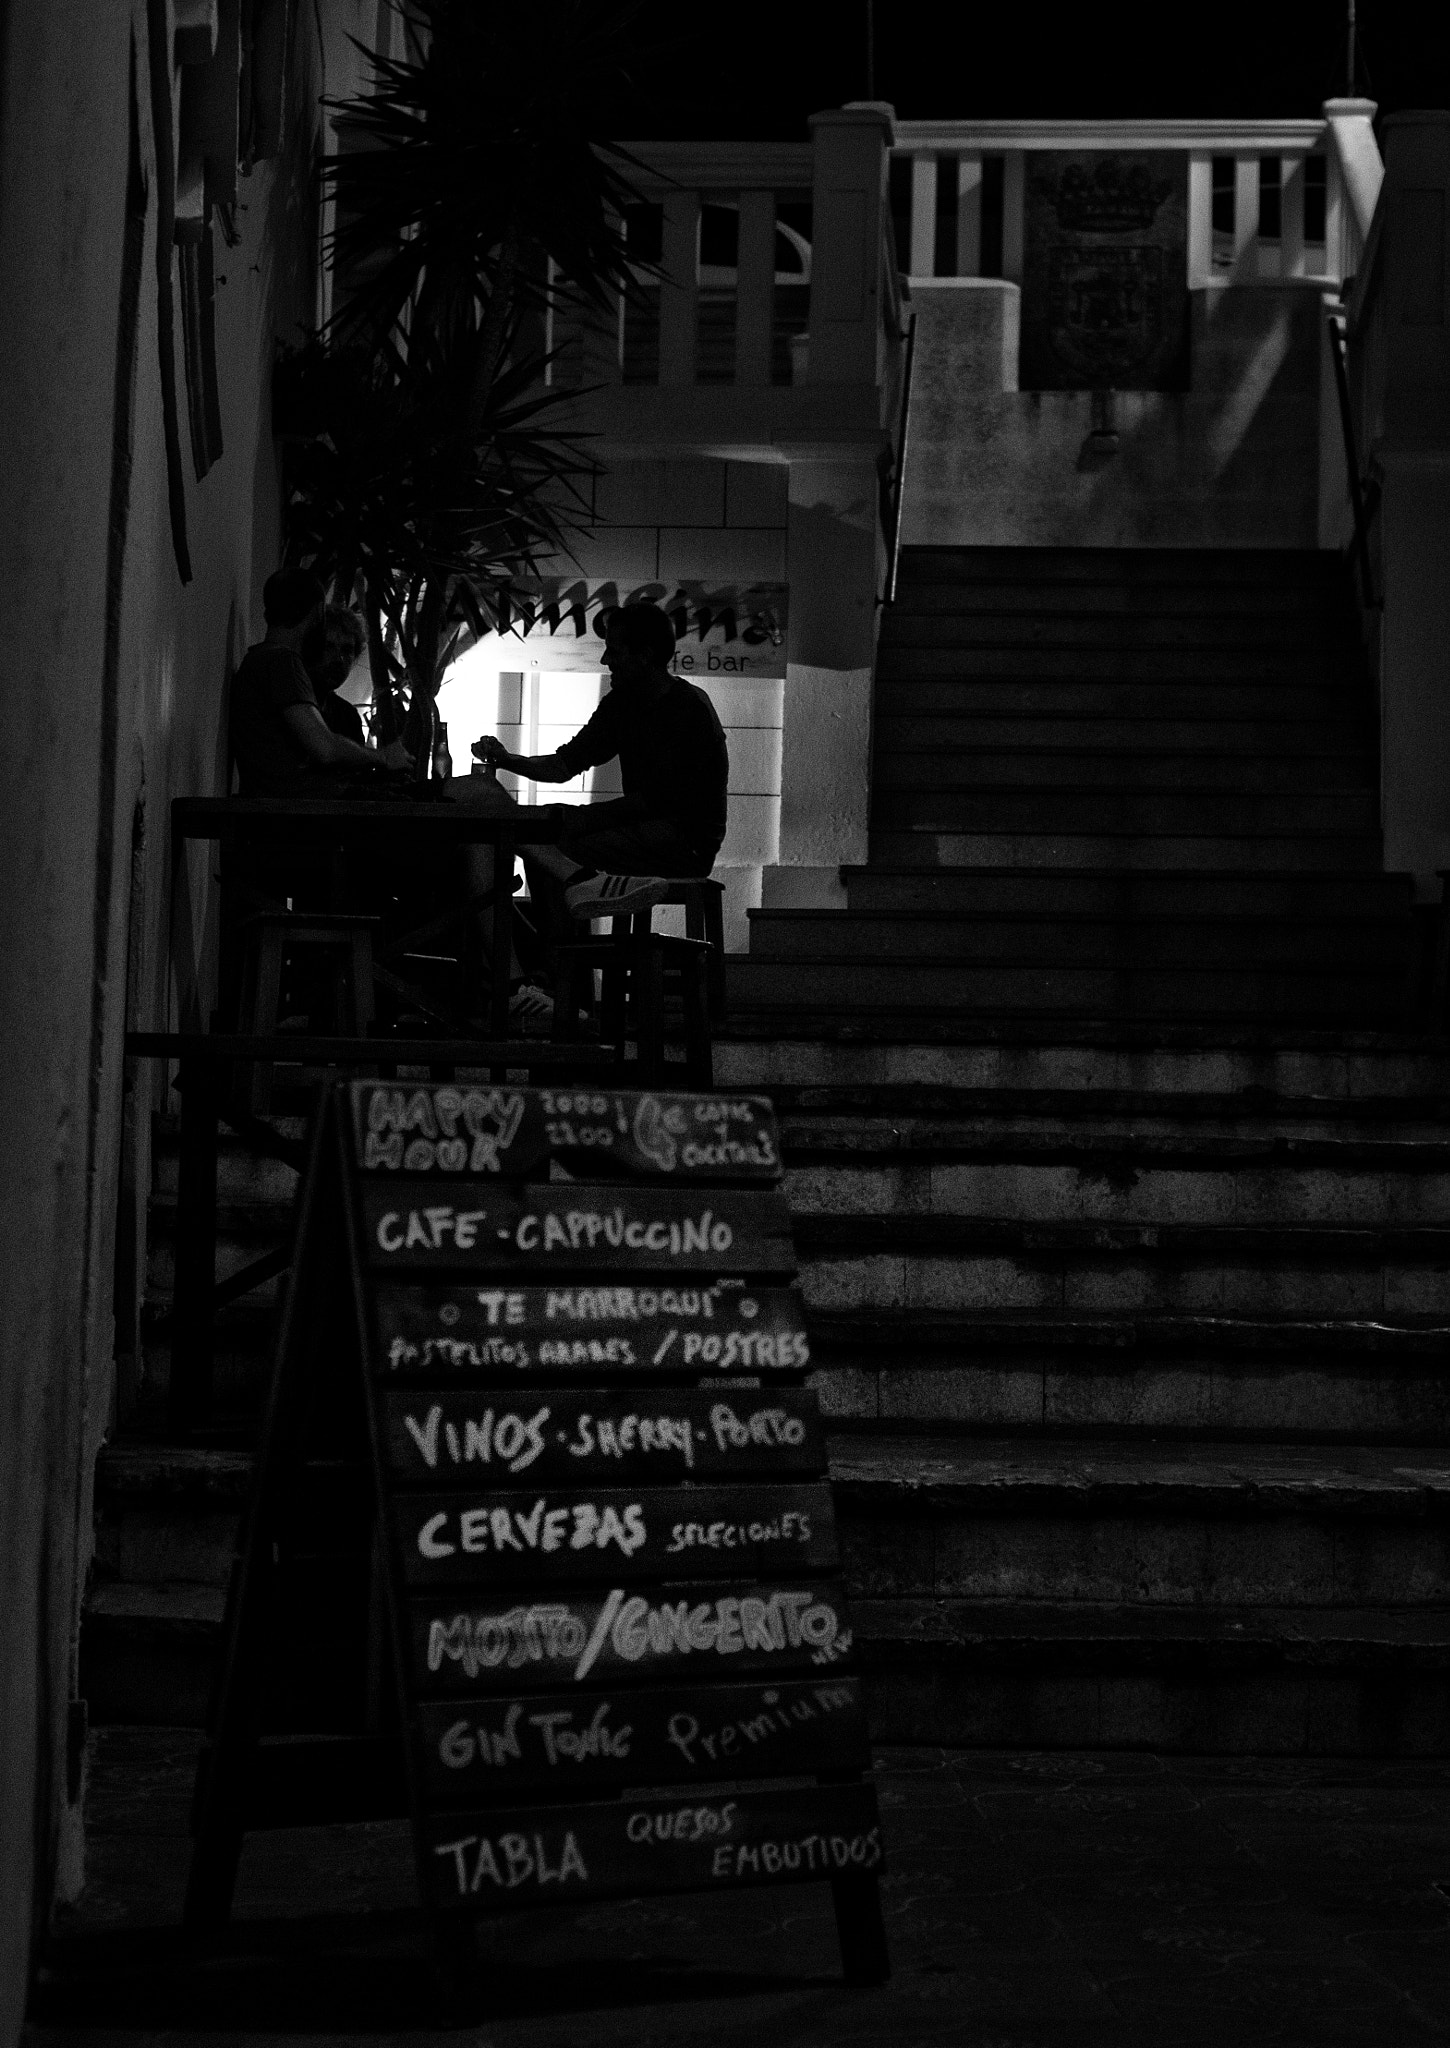 Almedina
fe bar
HAPPY 2000 ! 4€ COPAS
HOUR 2200 Y COCKTAILS
CAFE - CAPPUCCINO
TE MARROQUI
PASTELITOS ARABES / POSTRES
VINOS - SHERRY - PORTO
CERVEZAS SELECIONES
MOJITO / GINGERITO
NEW
GIN TONIC Premium
TABLA QUESOS
EMBUTIDOS